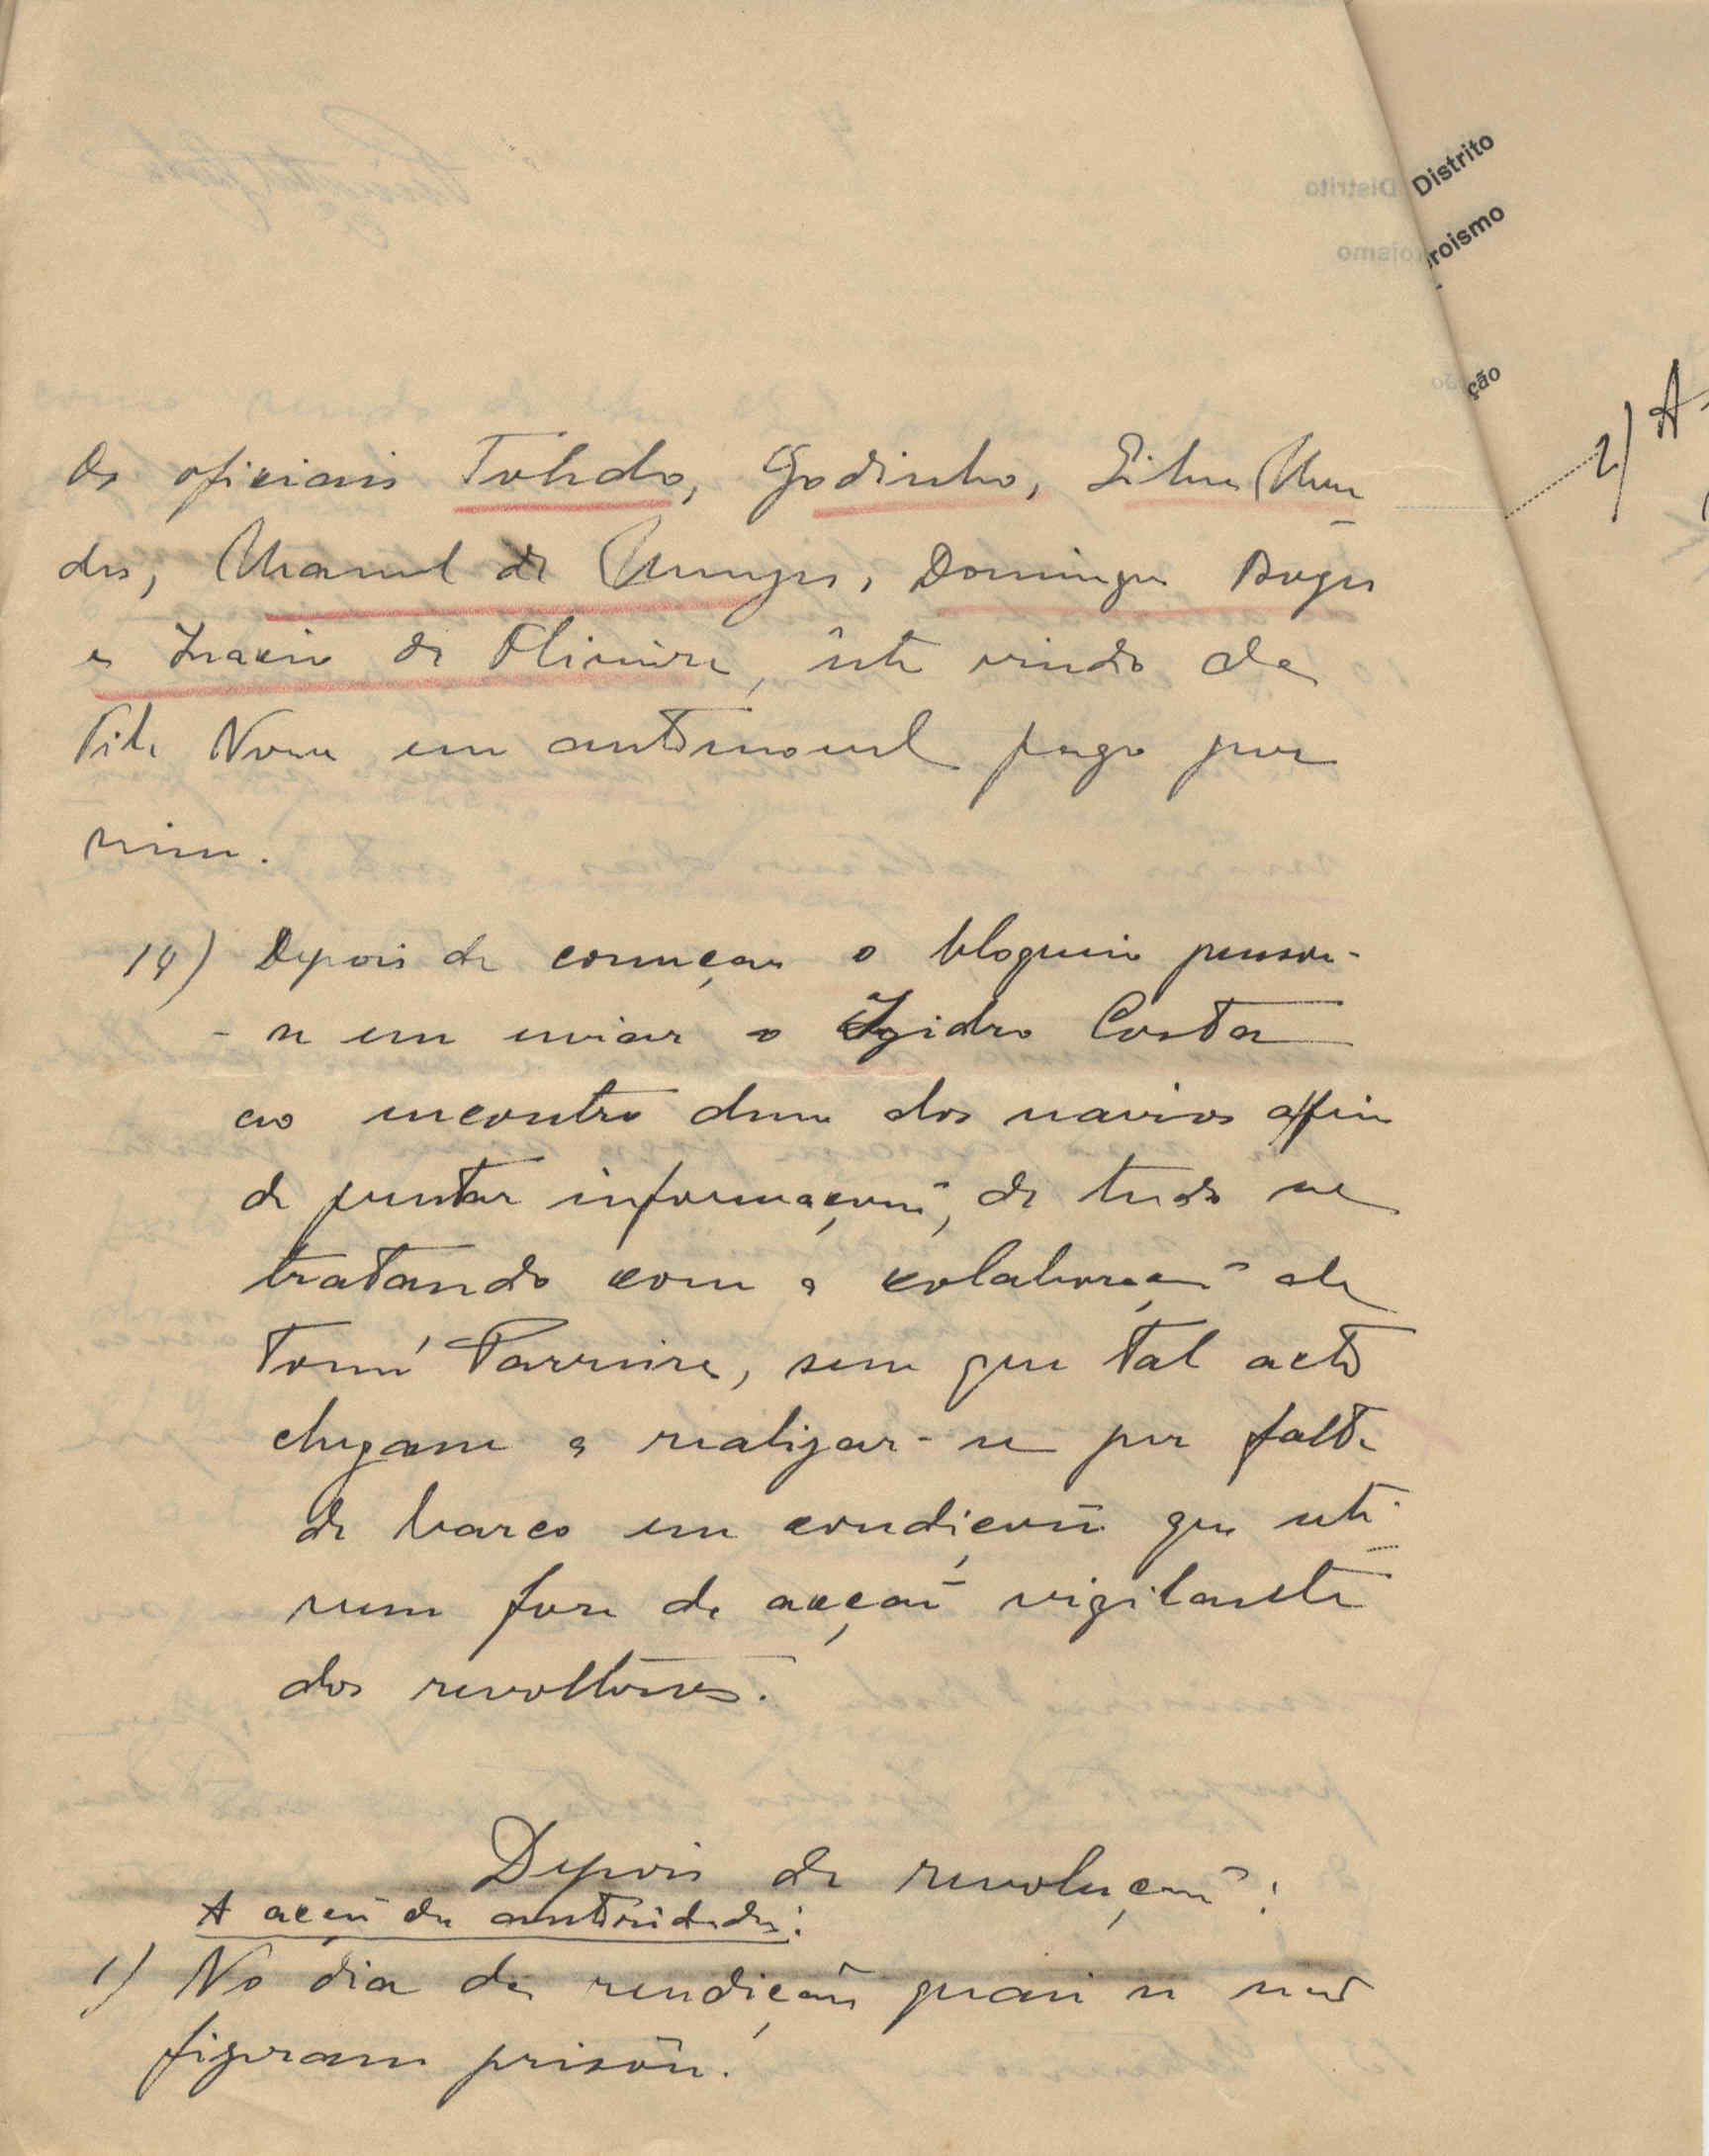 Os oficiais Toledo, Godinho, Silva Men
des, Manuel de Menezes, Domingos Borges
e Inacio de Oliveira, este vindo da
Vila Nova em automovel pago por
mim.
14) Depois de começar o bloqueio pensou-
-se em enviar o Izidro Costa
ao encontro dum dos navios affim
de prestar informações, de tudo se
tratando com a colaboração de
Tomé Parreira, sem que tal acto
chegasse a realizar-se por falta
de barco em condições que esti
vesse fora da acção vigilante
dos revoltosos.
Depois da revolução:
A acção das autoridades:
1) No dia da rendição quasi se não
fizeram prisões.
Distrito
roismo
ção
2) A